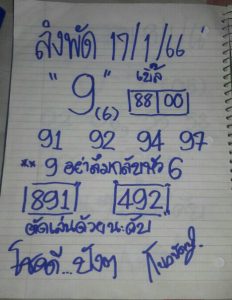 ส่งพัด 17/1/66
"9" (6) เบิ้ล 88 00
91 92 94 97
** 9 อย่าลืมกลับหัว 6
891 492
ตัดเล่นด้วยนะครับ
โชคดี... ปังๆ